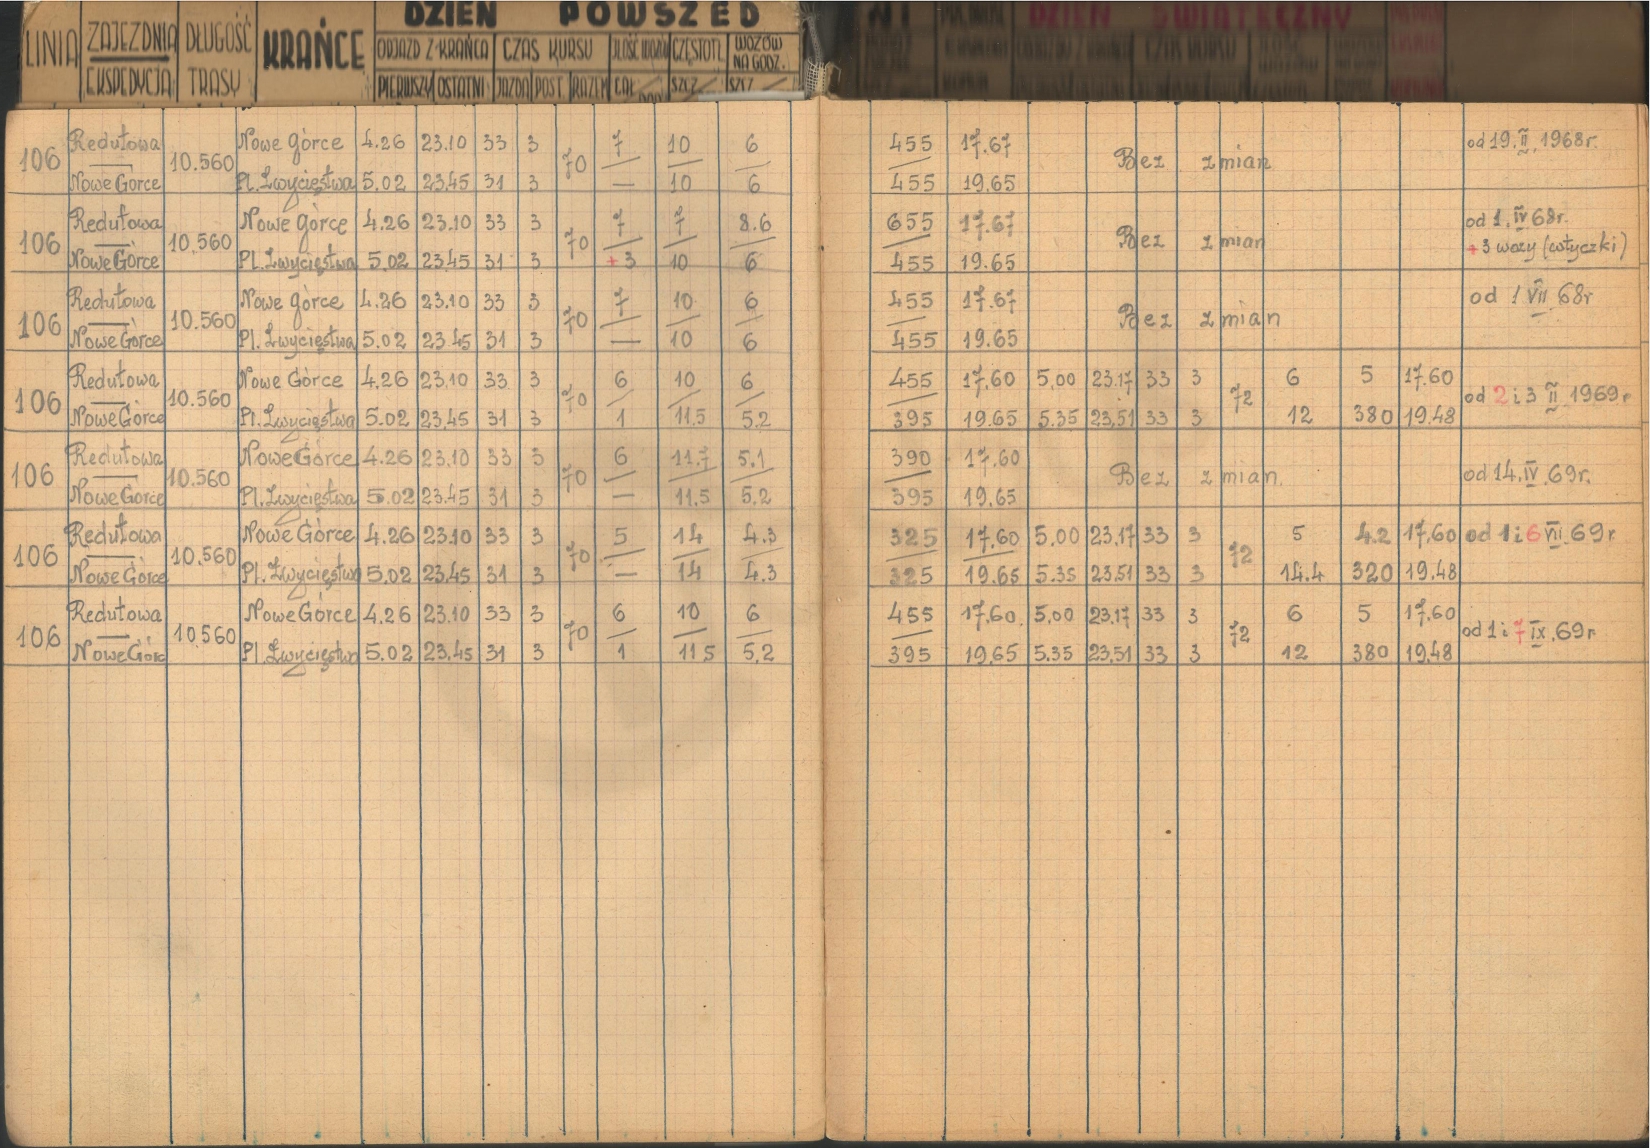 DZIEŃ POWSZED NI DZIEŃ ŚWIĄTECZNY
LINIA ZAJEZDNIA DŁUGOŚĆ KRAŃCE ODJAZD Z KRAŃCA CZAS KURSU ILOŚĆ WOZÓW CZĘSTOTL. WOZÓW NA GODZ.
EKSPEDYCJA TRASY PIERWSZY OSTATNI JAZDA POST. RAZEM CAŁ SZCZ SZCZ
Redutowa Nowe Górce 4.26 23.10 33 3 7 10 6 455 17.67 od 19.II.1968r.
106 10.560 70 Bez zmian
Nowe Górce Pl. Zwycięstwa 5.02 23.45 31 3 — 10 6 455 19.65
Redutowa Nowe Górce 4.26 23.10 33 3 7 7 8.6 655 17.67 od 1.IV 68r.
106 10.560 70 Bez zmian +3 wozy (wtyczki)
Nowe Górce Pl. Zwycięstwa 5.02 23.45 31 3 +3 10 6 455 19.65
Redutowa Nowe Górce 4.26 23.10 33 3 7 10 6 455 17.67 od 1 VII 68r
106 10.560 70 Bez zmian
Nowe Górce Pl. Zwycięstwa 5.02 23.45 31 3 — 10 6 455 19.65
Redutowa Nowe Górce 4.26 23.10 33 3 6 10 6 455 17.60 5.00 23.17 33 3 6 5 17.60
106 10.560 70 72 od 2 i 3 II 1969r
Nowe Górce Pl. Zwycięstwa 5.02 23.45 31 3 1 11.5 5.2 395 19.65 5.35 23.51 33 3 12 380 19.48
Redutowa Nowe Górce 4.26 23.10 33 3 6 11.7 5.1 390 17.60
106 10.560 70 Bez zmian. od 14.IV.69r.
Nowe Górce Pl. Zwycięstwa 5.02 23.45 31 3 — 11.5 5.2 395 19.65
Redutowa Nowe Górce 4.26 23.10 33 3 5 14 4.3 325 17.60 5.00 23.17 33 3 5 4.2 17.60 od 1 i 6 VII.69r.
106 10.560 70 72
Nowe Górce Pl. Zwycięstwa 5.02 23.45 31 3 — 14 4.3 325 19.65 5.35 23.51 33 3 14.4 320 19.48
Redutowa Nowe Górce 4.26 23.10 33 3 6 10 6 455 17.60 5.00 23.17 33 3 6 5 17.60
106 10.560 70 72 od 1 i 7 IX.69r
Nowe Górc Pl. Zwycięstwa 5.02 23.45 31 3 1 11.5 5.2 395 19.65 5.35 23.51 33 3 12 380 19.48